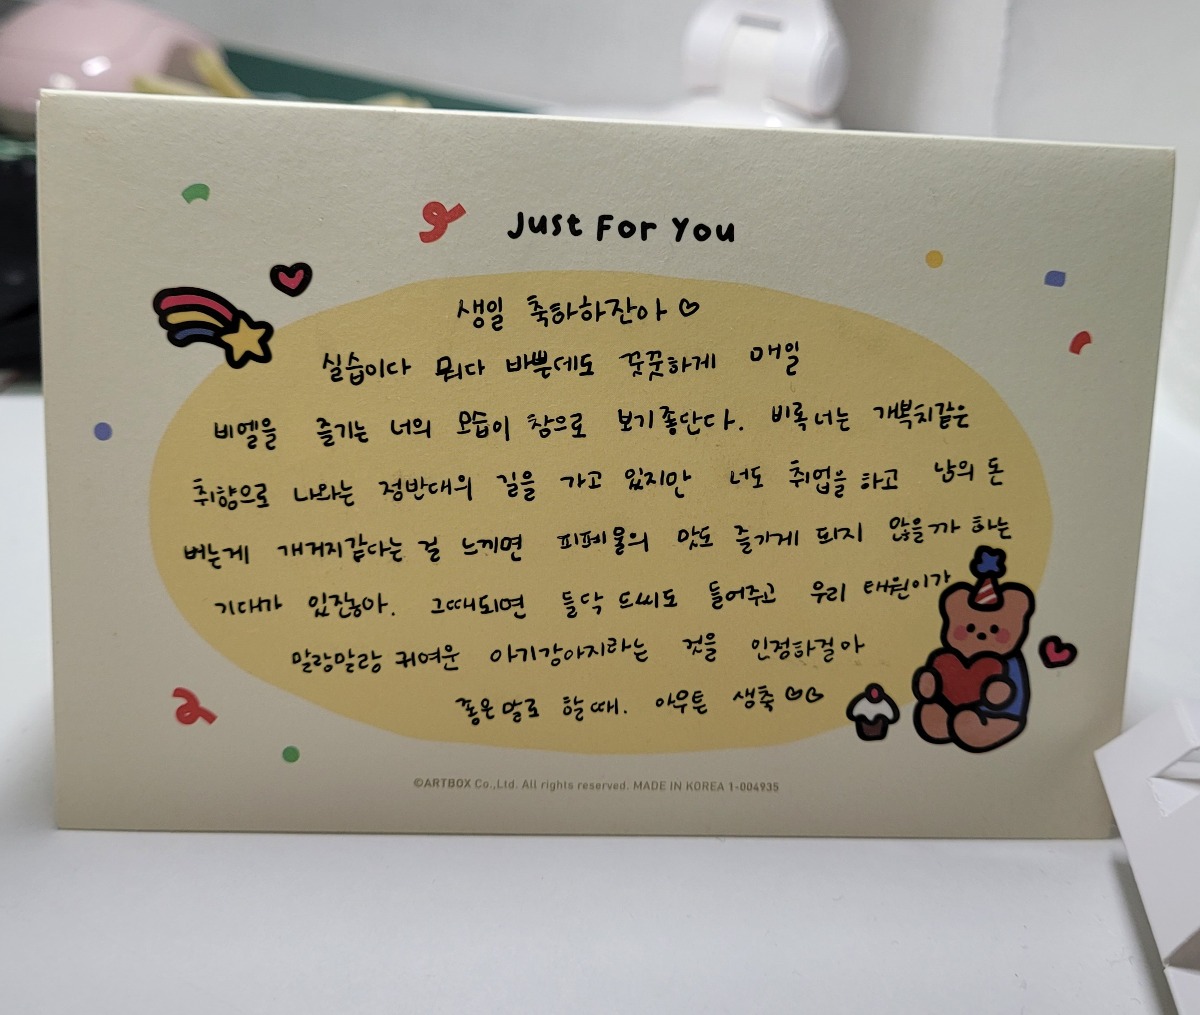 Just For You
생일 축하하잔아 ♡
실습이다 뭐다 바쁜데도 꿋꿋하게 매일
비엘을 즐기는 너의 모습이 참으로 보기좋단다. 비록 너는 개빡치같은
취향으로 나와는 정반대의 길을 가고 있지만 너도 취업을 하고 남의 돈
버는게 개거지같다는 걸 느끼면 피폐물의 맛도 즐기게 되지 않을까 하는
기대가 있잖아. 그때되면 들닥 드씨도 들어주고 우리 태원이가
말랑말랑 귀여운 아기강아지라는 것을 인정하걸아
좋은말로 할때. 아무튼 생축♡♡
©ARTBOX Co.,Ltd. All rights reserved. MADE IN KOREA 1-004935